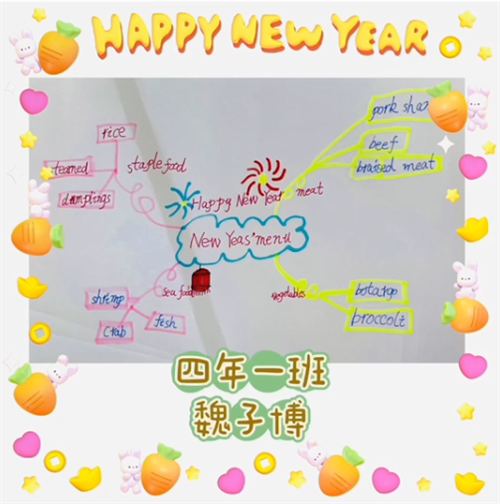 HAPPY NEW YEAR
rice
teamed
dumplings
staplefood
Happy New Year
New Yeas' menu
meat
pork shao
beef
braised meat
sea food
shrimp
crab
fish
vegetables
botatop
broccolt
四年一班
魏子博